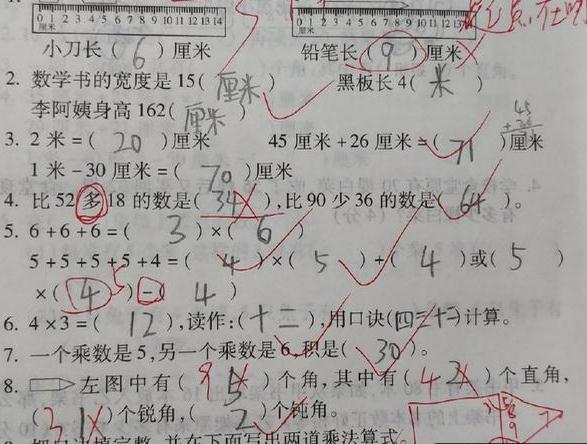 0 1 2 3 4 5 6 7 8 9 10 11 12 13 14 0 1 2 3 4 5 6 7 8 9 10 11 12 13 14
厘米 厘米
小刀长(6)厘米 铅笔长(9)厘米
2. 数学书的宽度是15(厘米) 黑板长4(米)
李阿姨身高162(厘米)
3. 2米=(20)厘米 45厘米+26厘米=(71)厘米
1米-30厘米=(70)厘米
4. 比52多18的数是(34),比90少36的数是(64)。
5. 6+6+6=(3)×(6)
5+5+5+5+4=(4)×(5)+(4)或(5)
×(4)-(4)
6. 4×3=(12),读作:(十二),用口诀(四三十二)计算。
7. 一个乘数是5,另一个乘数是6,积是(30)。
8. 左图中有(5)个角,其中有(4 2)个直角,
(2 1)个锐角,(2)个钝角。